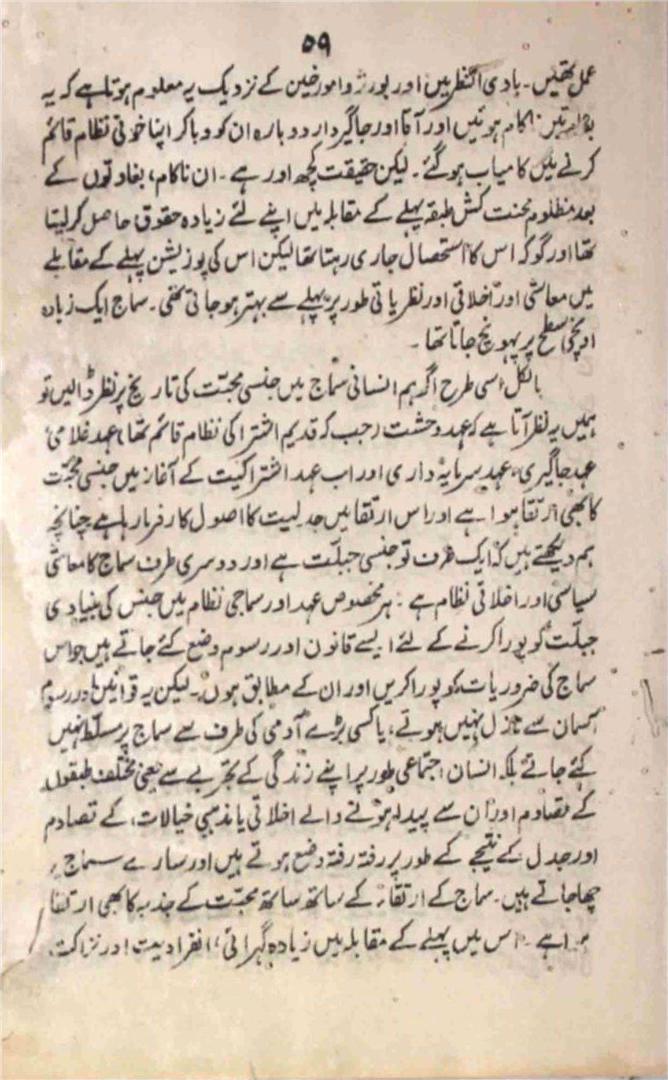 ۵۹
عمل تھیں۔ بادی النظر میں اور بورژوا مورخین کے نزدیک یہ معلوم ہوتا ہے کہ یہ
بغاوتیں ناکام ہوئیں اور آقا اور جاگیردار دوبارہ ان کو دبا کر اپنا خونی نظام قائم
کرنے میں کامیاب ہو گئے۔ لیکن حقیقت کچھ اور ہے۔ ان ناکام، بغاوتوں کے
بعد مظلوم محنت کش طبقہ پہلے کے مقابلہ میں اپنے لئے زیادہ حقوق حاصل کر لیتا
تھا اور گو کہ اس کا استحصال جاری رہتا تھا لیکن اس کی پوزیشن پہلے کے مقابلے
میں معاشی اور اخلاقی اور نظریاتی طور پر پہلے سے بہتر ہو جاتی تھی۔ سماج ایک زیادہ
اونچی سطح پر پہونچ جاتا تھا۔
بالکل اسی طرح اگر ہم انسانی سماج میں جنسی محبت کی تاریخ پر نظر ڈالیں تو
ہمیں یہ نظر آتا ہے کہ عہد وحشت (جب کہ قدیم اشتراکی نظام قائم تھا) عہد غلامی،
عہد جاگیری، عہد سرمایہ داری اور اب عہد اشتراکیت کے آغاز میں جنسی محبت
کا بھی ارتقا ہوا ہے اور اس ارتقا میں جدلیت کا اصول کارفرما رہا ہے چنانچہ
ہم دیکھتے ہیں کہ ایک طرف تو جنسی جبلّت ہے اور دوسری طرف سماج کا معاشی
سیاسی اور اخلاقی نظام ہے۔ ہر مخصوص عہد اور سماجی نظام میں جنس کی بنیادی
جبلّت کو پورا کرنے کے لئے ایسے قانون اور رسوم وضع کئے جاتے ہیں جو اس
سماج کی ضروریات کو پورا کریں اور ان کے مطابق ہوں۔ لیکن یہ قوانین اور رسوم
آسمان سے نازل نہیں ہوتے، یا کسی بڑے آدمی کی طرف سے سماج پر مسلّط نہیں
کئے جاتے بلکہ انسان اجتماعی طور پر اپنے زندگی کے تجربے سے یعنی مختلف طبقوں
کے تصادم اور ان سے پیدا ہونے والے اخلاقی یا مذہبی خیالات، کے تصادم
اور جدل کے نتیجے کے طور پر رفتہ رفتہ وضع ہوتے ہیں اور سارے سماج پر
چھا جاتے ہیں۔ سماج کے ارتقاء کے ساتھ ساتھ محبّت کے جذبہ کا بھی ارتقا
ہوا ہے۔ اس میں پہلے کے مقابلہ میں زیادہ گہرائی، انفرادیت اور نزاکت،